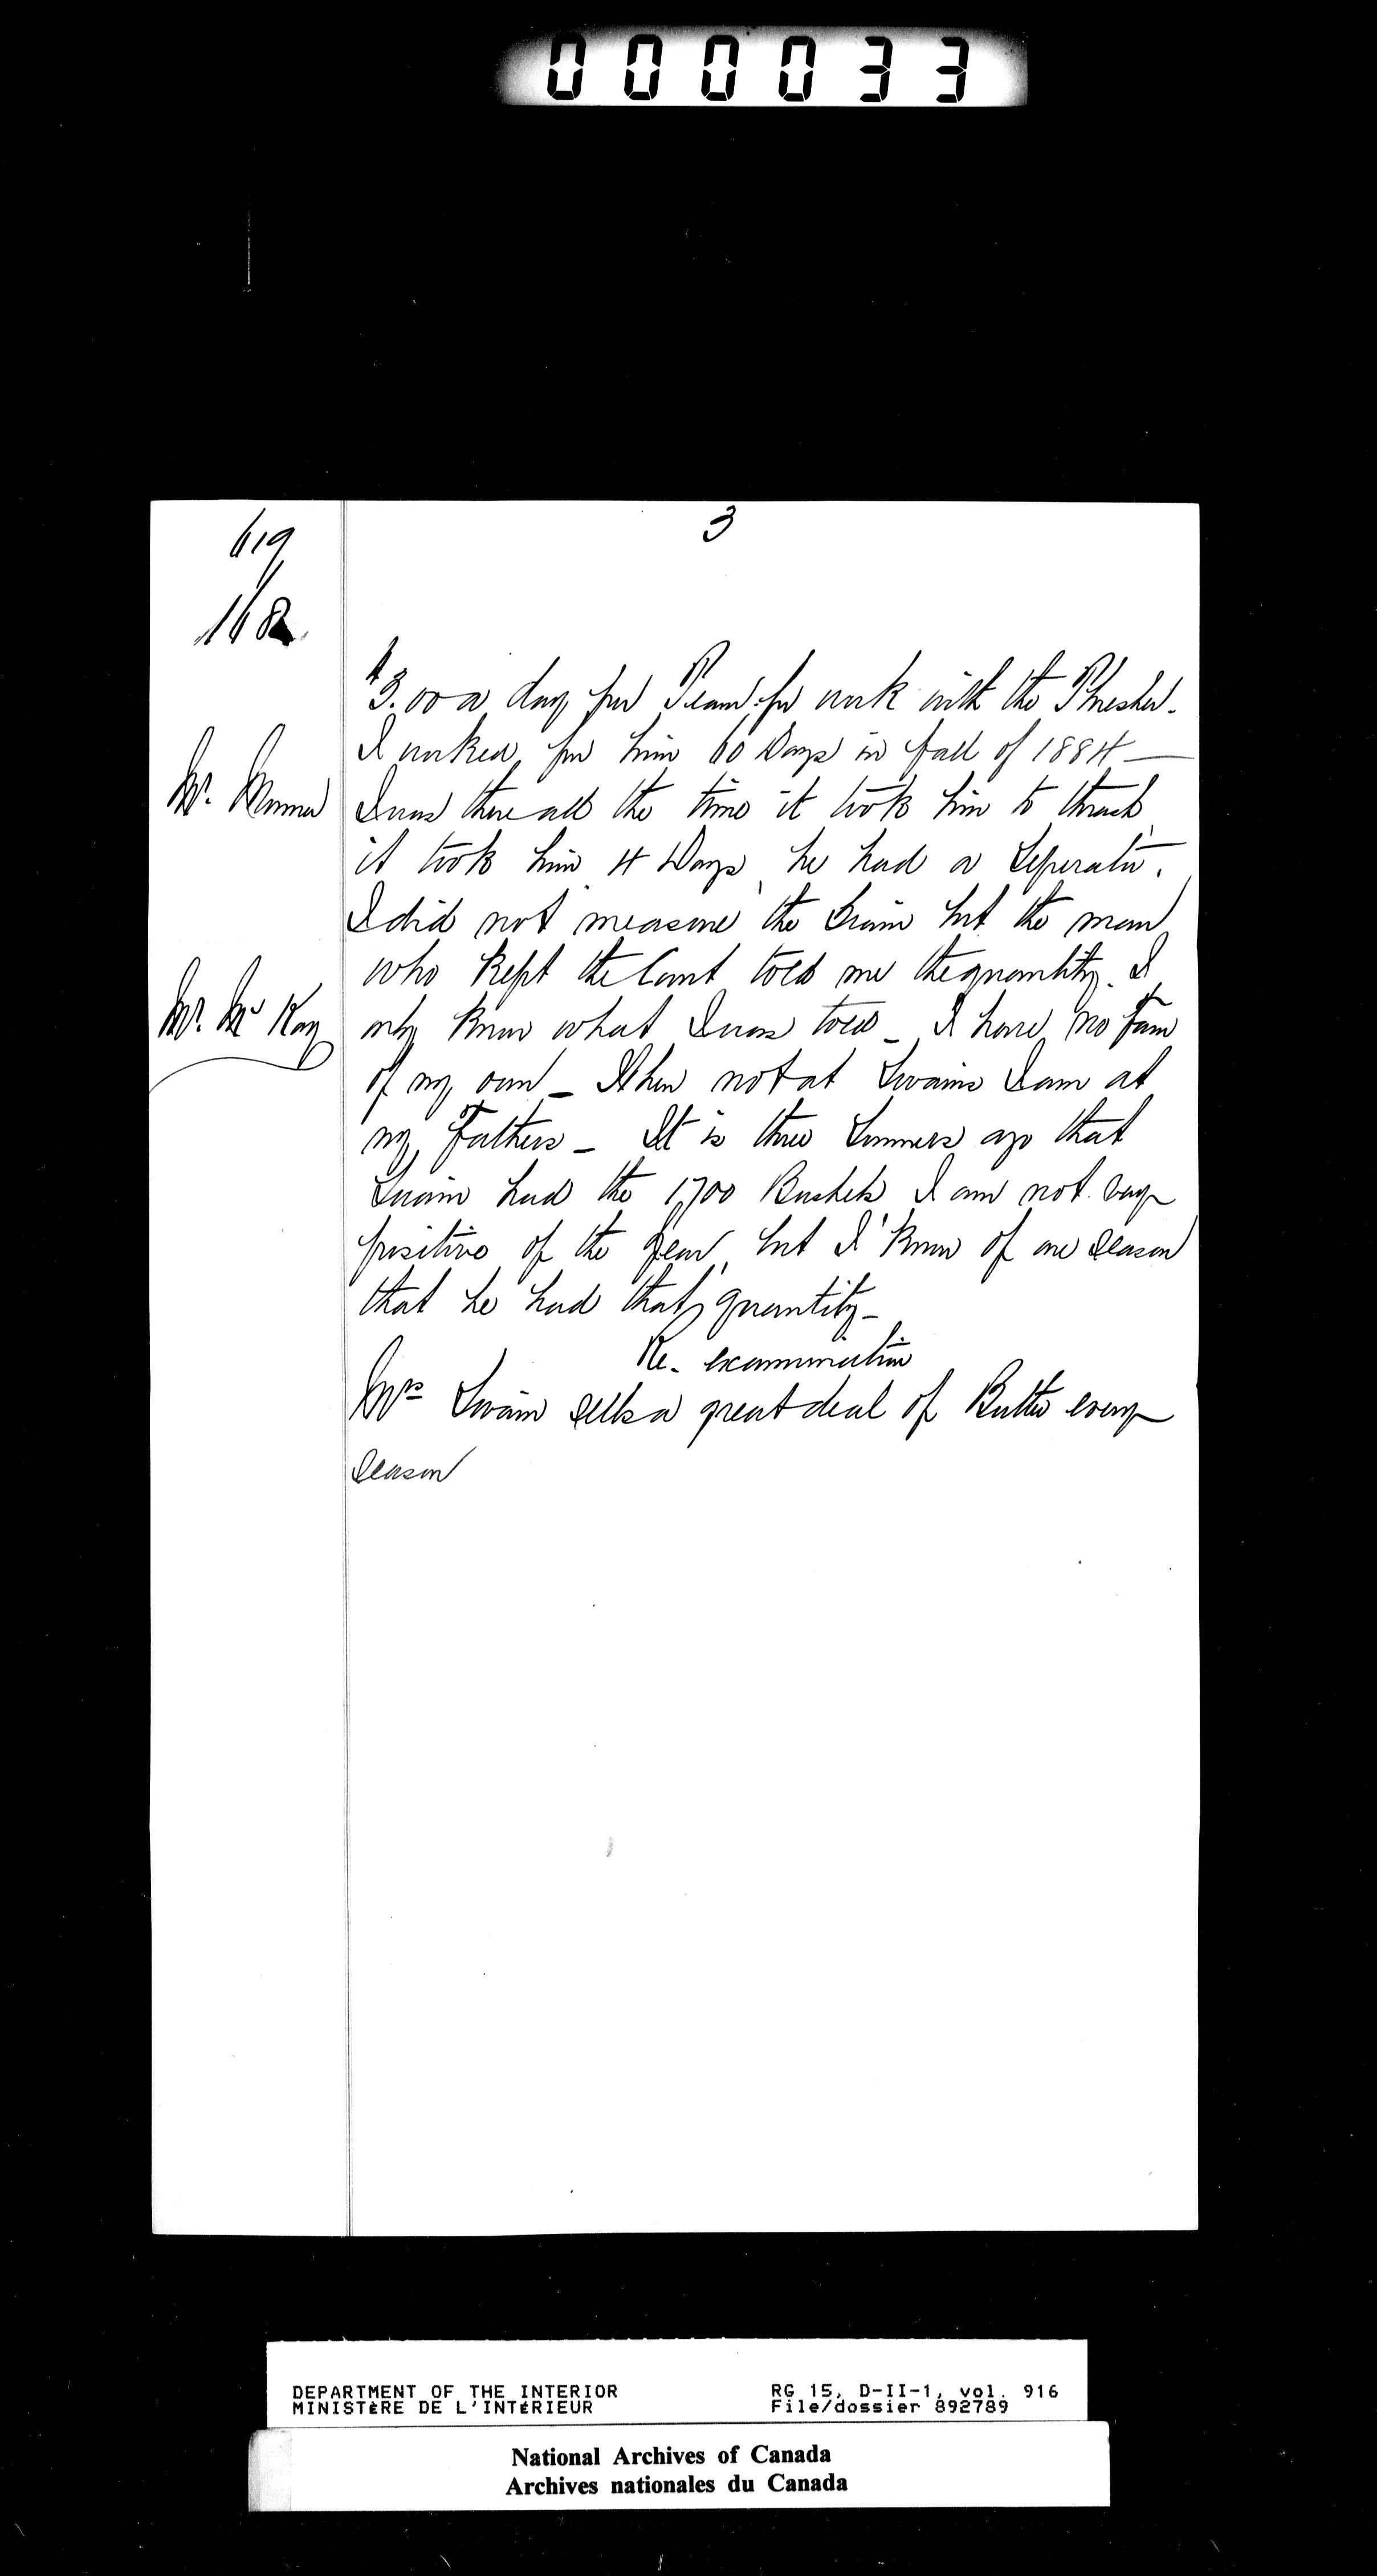 000033
619
3
168
$3.00 a day for Team for work with the Thresher.
I worked for him 10 Days in fall of 1884 —
Mr.
I was there all the time it took him to thrash
it took him 4 Days he had a Seperator.
I did not measure the Grain but the man
who kept the Count told me the quantity. I
Mr. McKay
only know what I was told – I have no Farm
of my own – When not at Swains I am at
my Fathers – It is three Summers ago that
Swain had the 1,700 Bushels I am not very
positive of the year, but I know of one Season
that he had that quantity –
Re-examination
Mrs Swain sells a great deal of Butter every
Season
DEPARTMENT OF THE INTERIOR RG 15, D-II-1, vol. 916
MINISTÈRE DE L'INTÉRIEUR File/dossier 892789
National Archives of Canada
Archives nationales du Canada